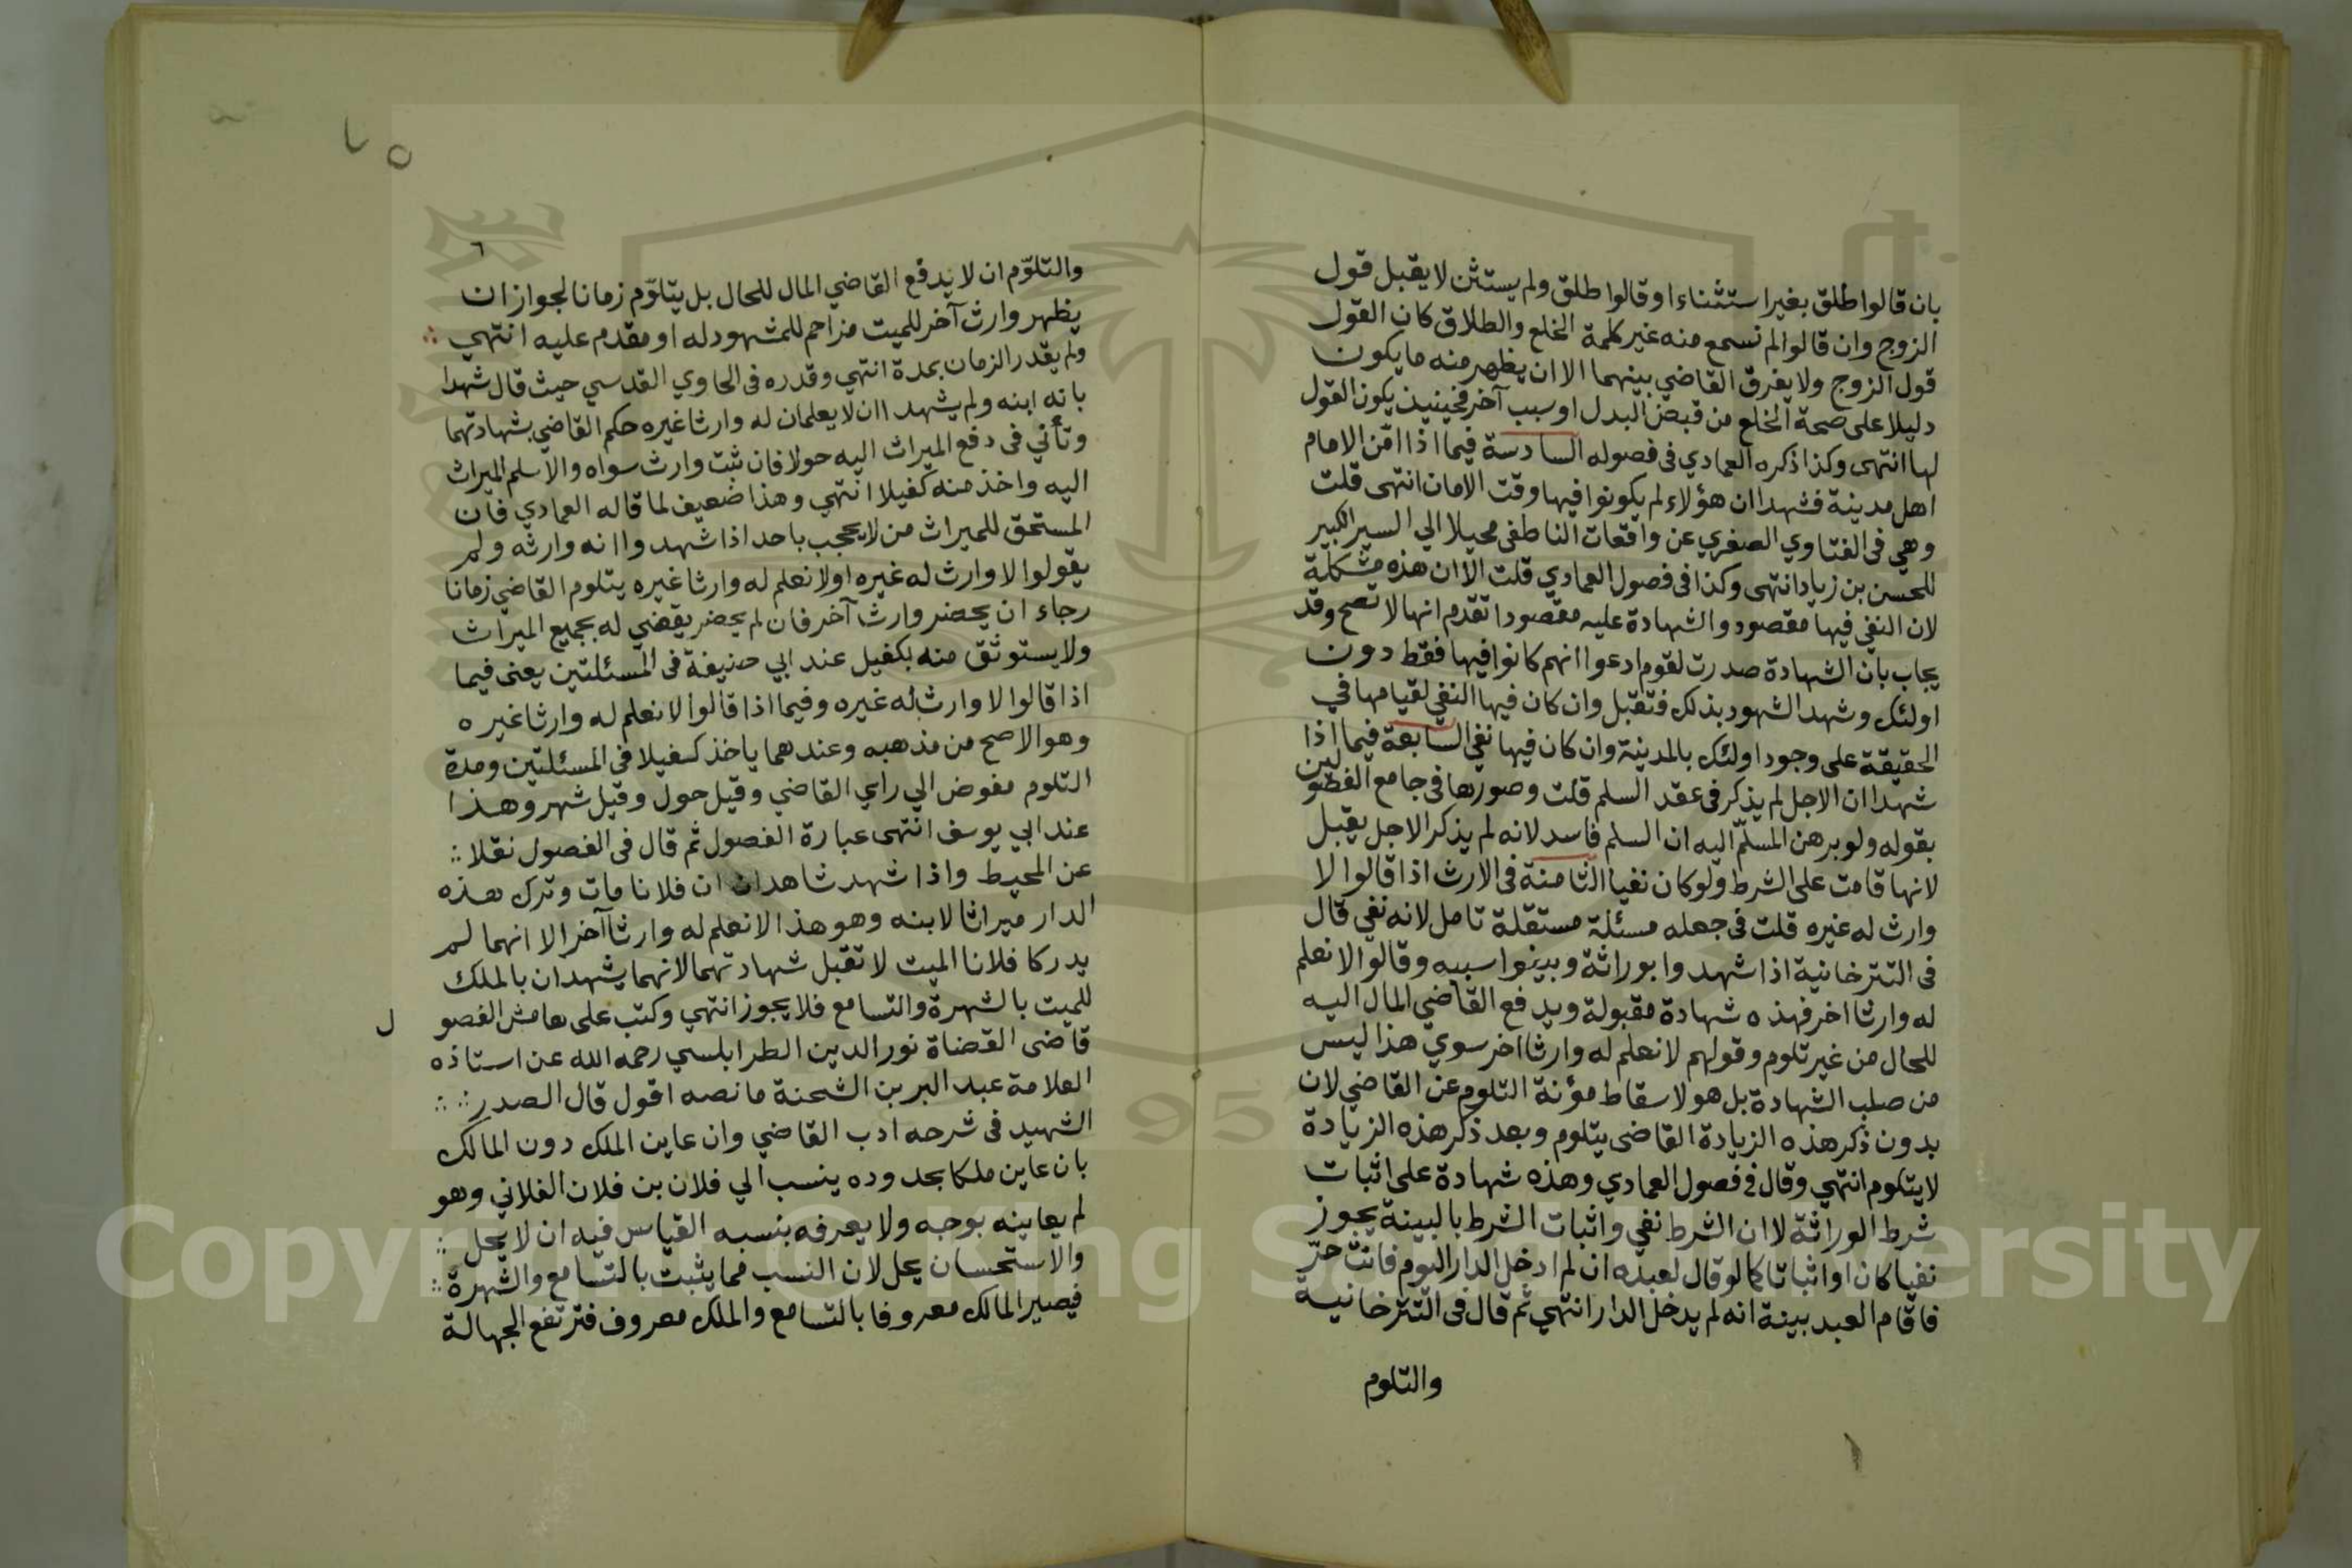 بان قالوا طلق بغير استثناء او قالوا طلق ولم يستثن لا يقبل قول
الزوج وان قالوا لم نسمع منه غير كلمة الخلع والطلاق كان القول
قول الزوج ولا يفرق القاضي بينهما الا ان يظهر منه ما يكون
دليلا على صحة الخلع من قبض البدل او سبب آخر فحينيذ يكون القول
لها انتهى وكذا ذكره العمادي فى فصوله السادسة فيما اذا امّن الامام
اهل مدينة فشهدا ان هؤلاء لم يكونوا فيها وقت الامان انتهى قلت
وهي فى الفتاوي الصغري عن واقعات الناطفى محيلا الي السير الكبير
للحسن بن زياد انتهى وكذا فى فصول العمادي قلت الا ان هذه مشكلة
لان النفي فيها مقصود والشهادة عليه مقصودا تقدم انها لا تصح وقد
يجاب بان الشهادة صدرت لقوم ادعوا انهم كانوا فيها فقط دون
اولئك وشهد الشهود بذلك فتقبل وان كان فيها النفي لقيامها في
الحقيقة على وجود اولئك بالمدينة وان كان فيها نفي السابعة فيما اذا
شهدا ان الاجل لم يذكر فى عقد السلم قلت وصورها فى جامع الفصولين
بقوله ولو برهن المسلّم اليه ان السلم فاسد لانه لم يذكر الاجل يقبل
لانها قامت على الشرط ولو كان نفيا الثامنة فى الارث اذا قالوا لا
وارث له غيره قلت فى جعله مسئلة مستقلة تامل لانه نفي قال
فى التترخانية اذا شهدوا بوراثة وبينوا سببه وقالوا لا نعلم
له وارثا اخر فهذه شهادة مقبولة ويدفع القاضي المال اليه
للحال من غير تلوم وقولهم لا نعلم له وارثا اخر سوي هذا ليس
من صلب الشهادة بل هو لاسقاط مؤنة التلوم عن القاضي لان
بدون ذكر هذه الزيادة القاضى يتلوم وبعد ذكر هذه الزيادة
لا يتلوم انتهي وقال في فصول العمادي وهذه شهادة على اثبات
شرط الوراثة لا ان الشرط نفي واثبات الشرط بالبينة يجوز
نفيا كان او اثباتا كما لو قال لعبده ان لم ادخل الدار اليوم فانت حرّ
فاقام العبد بينة انه لم يدخل الدار انتهي ثم قال فى التترخانية
والتلوم
٦
والتلوّم ان لا يدفع القاضي المال للحال بل يتلوّم زمانا لجواز ان
يظهر وارث آخر للميت مزاحم للمشهود له او مقدم عليه انتهي
ولم يقدر الزمان بمدة انتهي وقدره فى الحاوي القدسي حيث قال شهدا
بانه ابنه ولم يشهدا ان لا يعلمان له وارثا غيره حكم القاضي بشهادتهما
وتأني فى دفع الميراث اليه حولا فان ثبت وارث سواه والا سلم الميراث
اليه واخذ منه كفيلا انتهي وهذا ضعيف لما قاله العمادي فان
المستحق للميراث من لا يحجب باحد اذا شهدوا انه وارثه ولم
يقولوا لا وارث له غيره او لا نعلم له وارثا غيره يتلوم القاضي زمانا
رجاء ان يحضر وارث آخر فان لم يحضر يقضي له بجميع الميراث
ولا يستوثق منه بكفيل عند ابي حنيفة فى المسئلتين يعنى فيما
اذا قالوا لا وارث له غيره وفيما اذا قالوا لا نعلم له وارثا غيره
وهو الاصح من مذهبه وعندهما ياخذ كفيلا فى المسئلتين ومدة
التلوم مفوض الي راي القاضي وقيل حول وقيل شهر وهذا
عند ابي يوسف انتهى عبارة الفصول ثم قال فى الفصول نقلا
عن المحيط واذا شهد شاهدان ان فلانا مات وترك هذه
الدار ميراثا لابنه وهو هذا لا نعلم له وارثا آخر الا انهما لم
يدركا فلانا الميت لا تقبل شهادتهما لانهما يشهدان بالملك
للميت بالشهرة والتسامع فلا يجوز انتهي وكتب على هامش الفصول
قاضى القضاة نور الدين الطرابلسي رحمه الله عن استاذه
العلامة عبد البر بن الشحنة ما نصه اقول قال الصدر
الشهيد فى شرحه ادب القاضي وان عاين الملك دون المالك
بان عاين ملكا بحدوده ينسب الي فلان بن فلان الفلاني وهو
لم يعاينه بوجه ولا يعرفه بنسبه القياس فيه ان لا يحل
والاستحسان يحل لان النسب مما يثبت بالتسامع والشهرة
فيصير المالك معروفا بالتسامع والملك معروف فترتفع الجهالة
Copyright © King Saud University